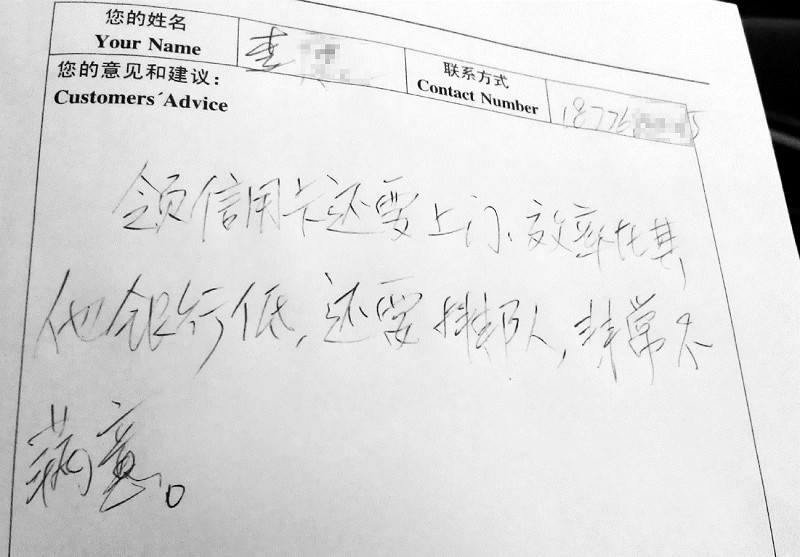 您的姓名
Your Name
李
联系方式
Contact Number
18776 5
您的意见和建议：
Customers´Advice
领信用卡还要上门、效率比其
他银行低，还要排队，非常不
满意。